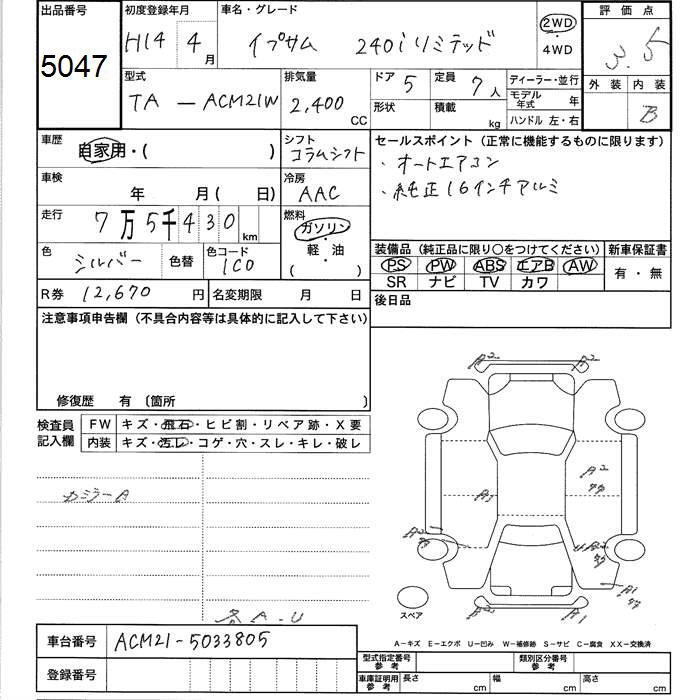 出品番号
5047
初度登録年月
H14 4月
車名・グレード
イプサム 240iリミテッド
2WD
・
4WD
評価点
3.5
型式
TA－ACM21W
排気量
2,400
CC
ドア 5
定員 7人
ディーラー・並行
モデル年式 年
ハンドル 左・右
形状
積載 kg
外装
内装
B
車歴
自家用・( )
シフト
コラムシフト
セールスポイント (正常に機能するものに限ります)
・オートエアコン
・純正16インチアルミ
車検
年 月( 日)
冷房
AAC
走行
7万5千430km
燃料
ガソリン
・
軽・油
( )
色
シルバー
色替
色コード
1C0
装備品 (純正品に限り○をつけてください)
新車保証書
PS PW ABS エアB AW
SR ナビ TV カワ
有・無
R券 12,670円
名変期限 月 日
後日品
注意事項申告欄 (不具合内容等は具体的に記入して下さい)
修復歴 有 〔箇所 〕
検査員
記入欄
FW キズ・飛石・ヒビ割・リペア跡・X要
内装 キズ・汚レ・コゲ・穴・スレ・キレ・破レ
A2 A2
A2
A3
カミラーA
各A-U
A1
スペア
A－キズ E－エクボ U－凹み W－補修跡 S－サビ C－腐食 XX－交換済
車台番号 ACM21-5033805
登録番号
型式指定番号
参考
類別区分番号
参考
車庫証明用
参考
長さ cm
幅 cm
高さ cm